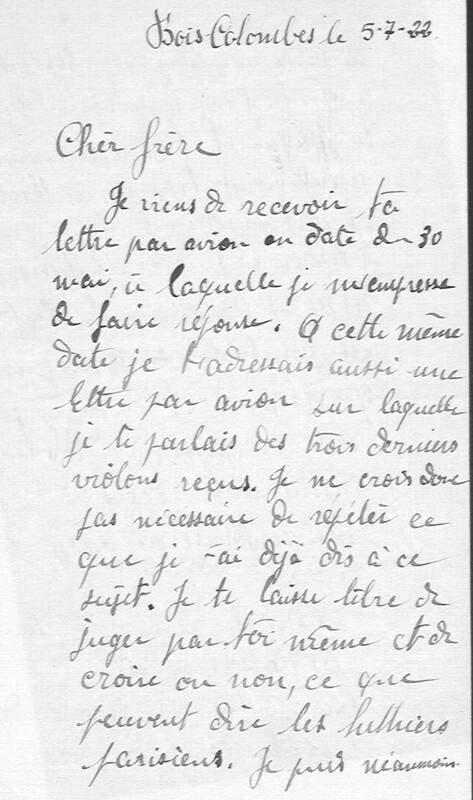 Bois-Colombes le 5-7-22
Chèr frère
Je viens de recevoir ta
lettre par avion en date du 30
mai, à laquelle je m'empresse
de faire réponse. A cette même
date je t'adressais aussi une
lettre par avion sur laquelle
je te parlais des trois derniers
violons reçus. Je ne crois donc
pas nécessaire de répéter ce
que je t'ai déjà dis à ce
sujet. Je te laisse libre de
juger par toi même et de
croire ou non, ce que
peuvent dire les luthiers
parisiens. Je puis néanmoins